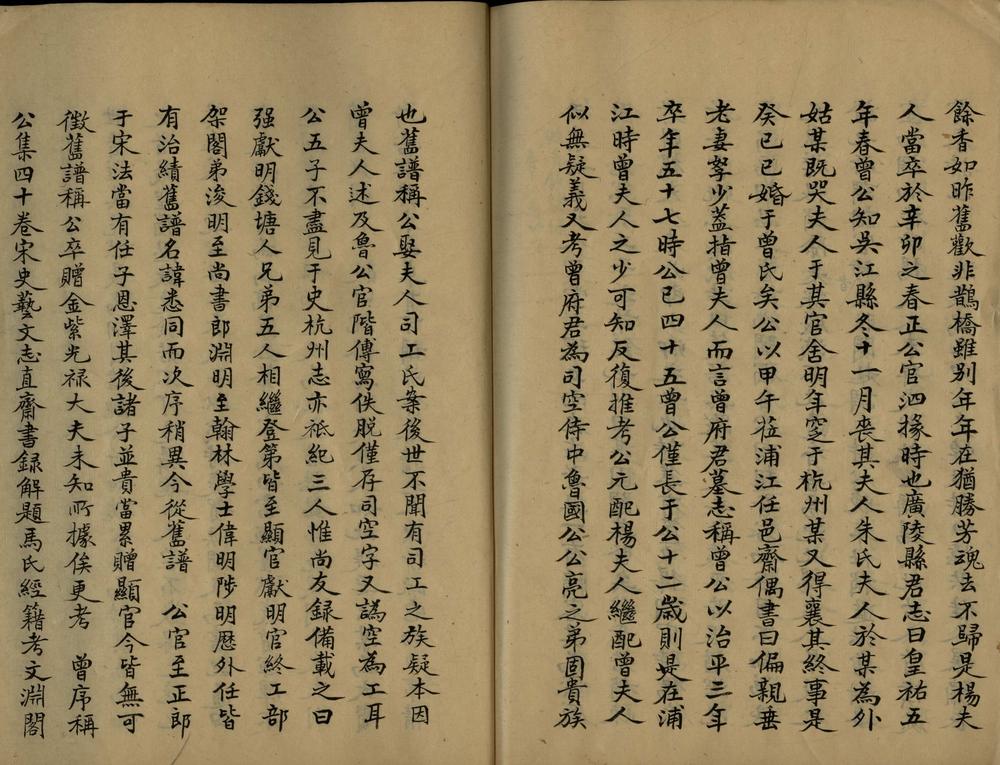 餘香如昨舊歡非鵲橋雖别年年在猶勝芳魂去不歸是楊夫
人當卒於辛卯之春正公官泗掾時也廣陵縣君志曰皇祐五
年春曾公知吳江縣冬十一月喪其夫人朱氏夫人於某為外
姑某既哭夫人于其官舍明年窆于杭州某又得襄其終事是
癸巳已婚于曾氏矣公以甲午莅浦江任邑齋偶書曰偏親垂
老妻孥少蓋指曾夫人而言曾府君墓志稱曾公以治平三年
卒年五十七時公已四十五曾公僅長于公十二歲則是在浦
江時曾夫人之少可知反復推考公元配楊夫人繼配曾夫人
似無疑義又考曾府君為司空侍中魯國公公亮之弟固貴族
也舊譜稱公娶夫人司工氏案後世不聞有司工之族疑本因
曾夫人述及魯公官階傳寫佚脱僅存司空字又譌空為工耳
公五子不盡見于史杭州志亦祗紀三人惟尚友録備載之曰
强獻明錢塘人兄弟五人相繼登第皆至顯官獻明官終工部
架閣弟浚明至尚書郎淵明至翰林學士偉明陟明歷外任皆
有治績舊譜名諱悉同而次序稍異今從舊譜　公官至正郎
于宋法當有任子恩澤其後諸子並貴當累贈顯官今皆無可
徵舊譜稱公卒贈金紫光禄大夫未知所據俟更考　曾序稱
公集四十卷宋史藝文志直齋書録解題馬氏經籍考文淵閣